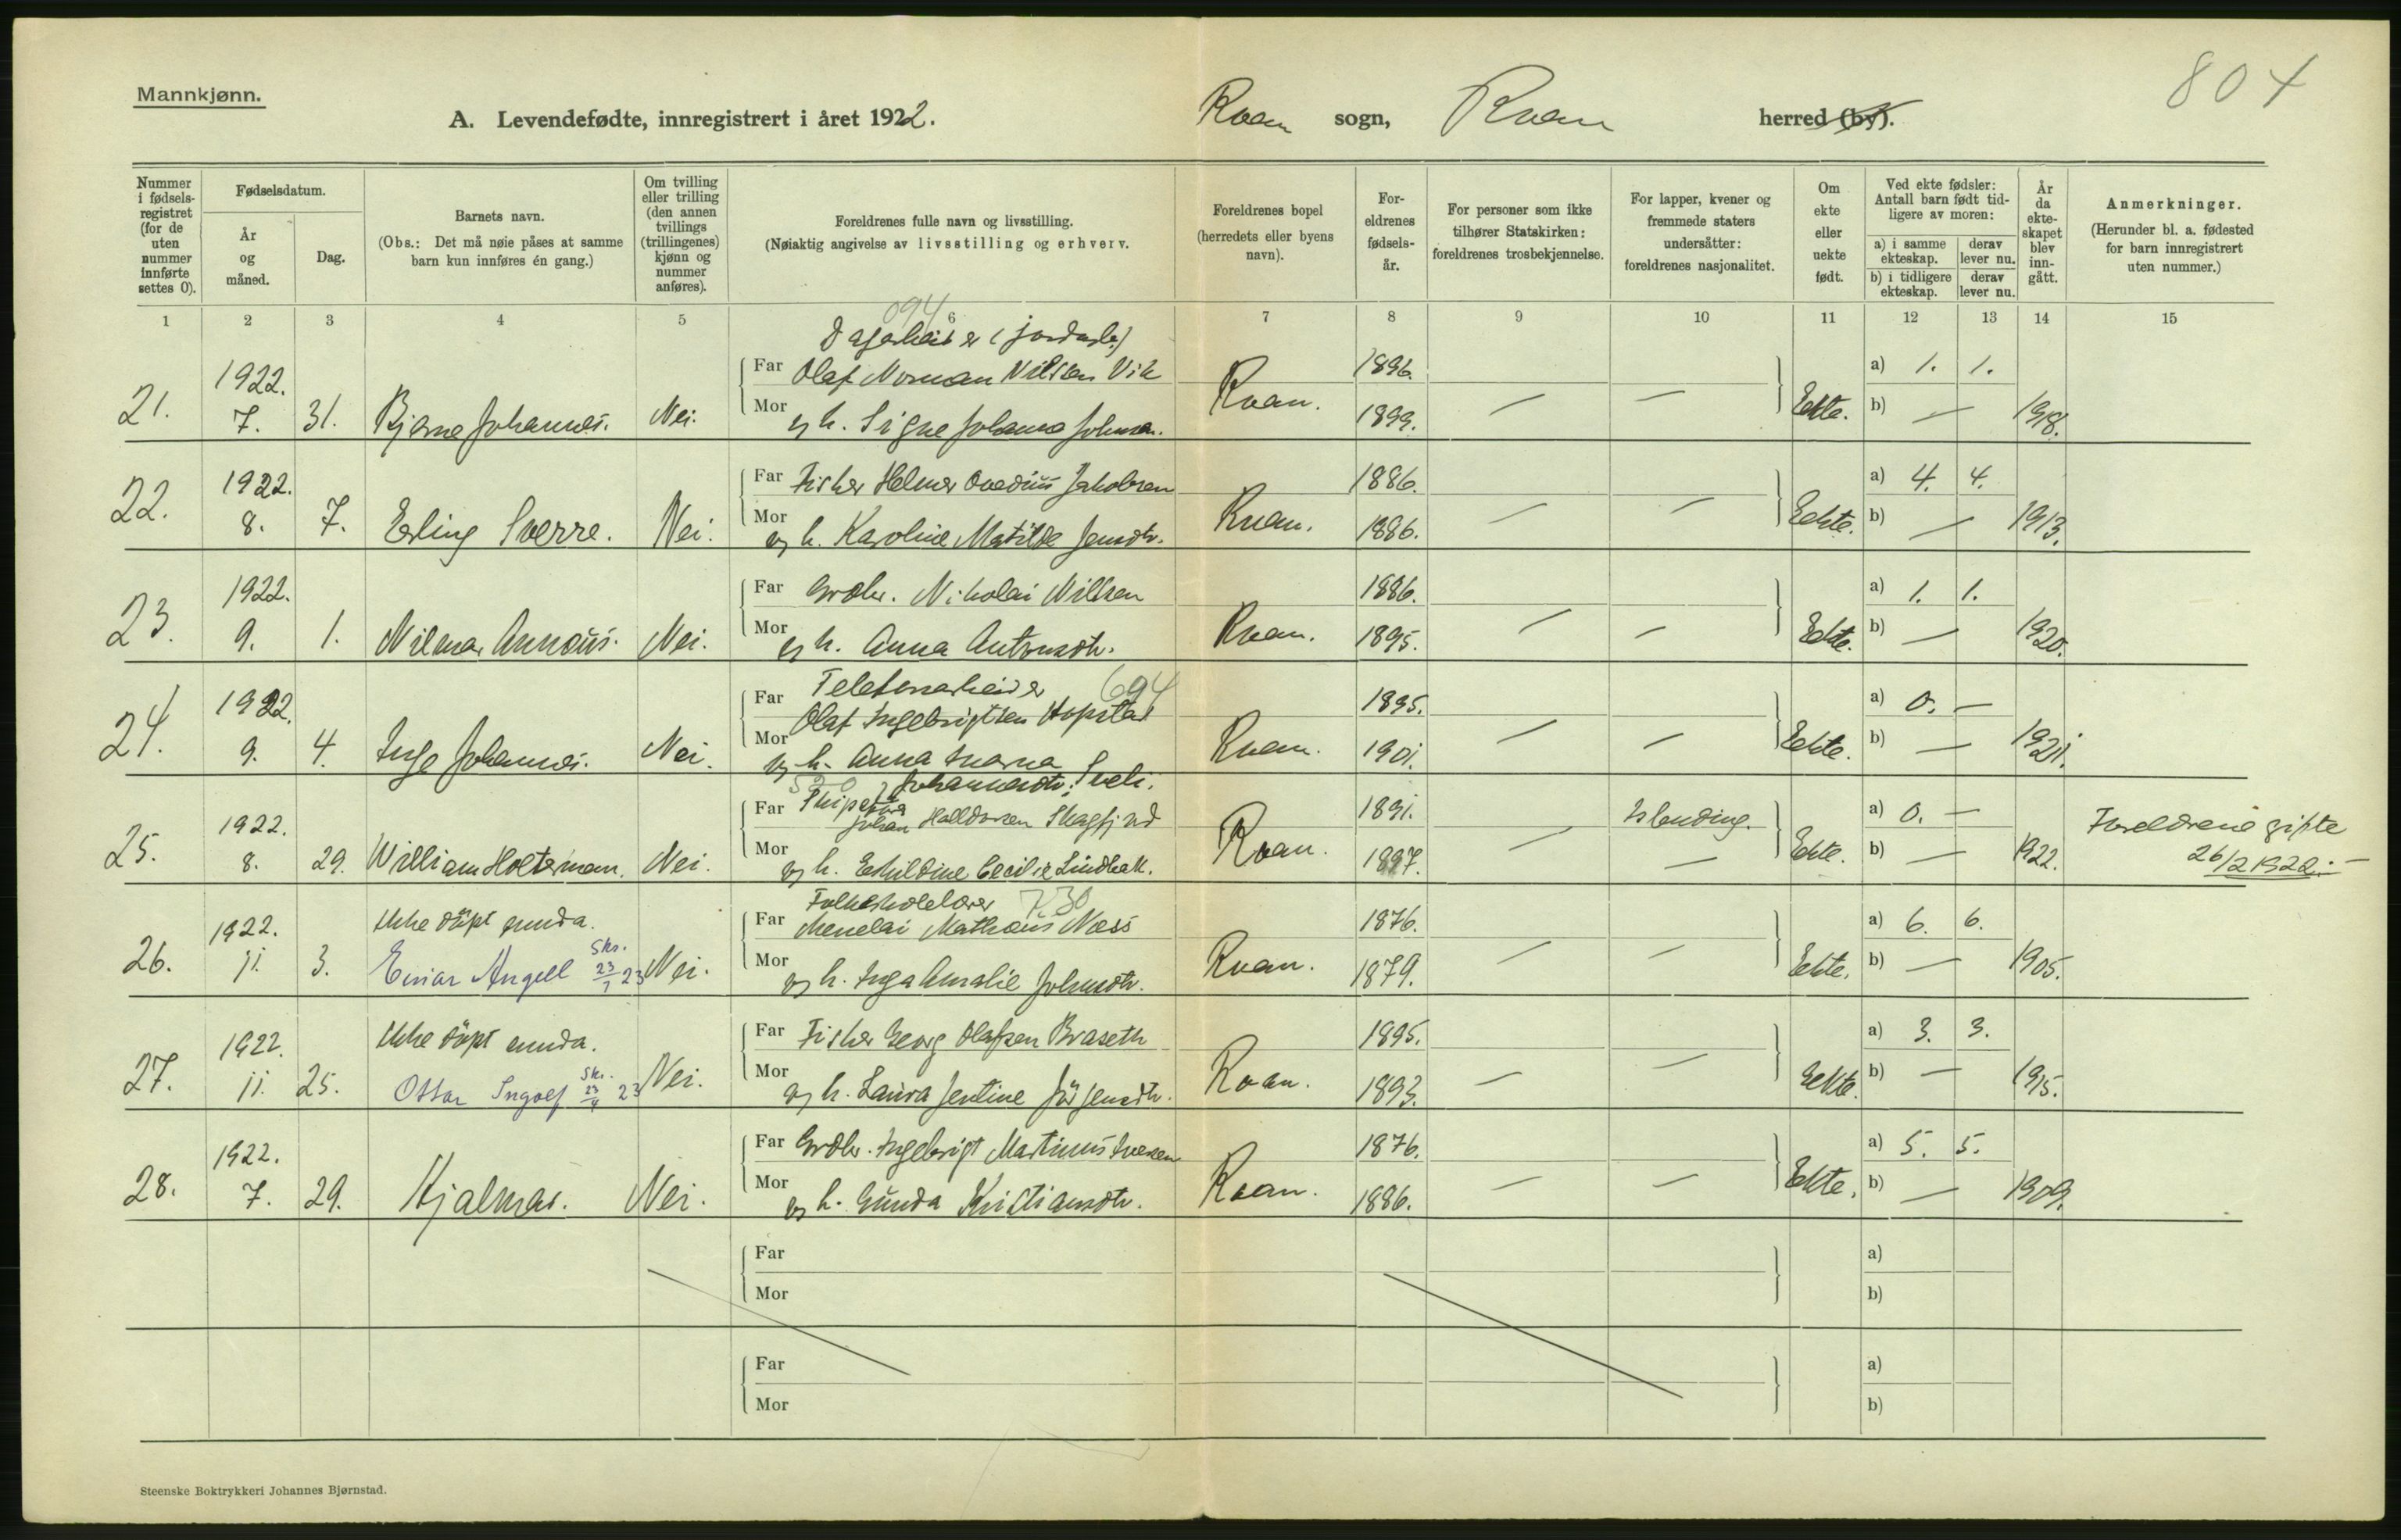 Mannkjønn.
804
A. Levendefødte, innregistrert i året 1922. Roan sogn, Roan herred (by).
Nummer i fødsels-registret (for de uten nummer innførte settes 0).
Fødselsdatum.
År og måned.
Dag.
Barnets navn.
(Obs.: Det må nøie påses at samme barn kun innføres én gang.)
Om tvilling eller trilling (den annen tvillings (trillingenes) kjønn og nummer anføres).
Foreldrenes fulle navn og livsstilling.
(Nøiaktig angivelse av livsstilling og erhverv.
Foreldrenes bopel (herredets eller byens navn).
For-eldrenes fødsels-år.
For personer som ikke tilhører Statskirken: foreldrenes trosbekjennelse.
For lapper, kvener og fremmede staters undersåtter: foreldrenes nasjonalitet.
Om ekte eller uekte født.
Ved ekte fødsler: Antall barn født tid-ligere av moren:
a) i samme ekteskap.
derav lever nu.
b) i tidligere ekteskap.
derav lever nu.
År da ekte-skapet blev inn-gått.
Anmerkninger.
(Herunder bl. a. fødested for barn innregistrert uten nummer.)
1 2 3 4 5 6 7 8 9 10 11 12 13 14 15
094
Dagarbeider (jordarb.)
1922. Far Olaf Norman Nilsen Vik 1896. a) 1. 1.
21. 7. 31. Bjarne Johannes. Nei. Mor og h. Signe Johanna Johnsen. Roan. 1899. — — Ekte. b) — 1918.
1922. Far Fisker Helmer Ovedius Jakobsen 1886. a) 4. 4.
22. 8. 7. Erling Sverre. Nei. Mor og h. Karoline Matilde Jensdtr. Roan. 1886. — — Eekte. b) — 1913.
1922. Far Grdbr. Nikolai Nilsen 1886. a) 1. 1.
23. 9. 1. Nilmar Annæus. Nei. Mor og h. Anna Antonsdtr. Roan. 1895. — — Eekte. b) — 1920.
Telefonarbeider 694
1922. Far Olaf Ingebrigtsen Hopstad 1895. a) 0. —
24. 9. 4. Inge Johannes. Nei. Mor og h. Anna Marna Roan. 1901. — — Eekte. b) — 1921.
Johannesdtr. Sveli.
520
1922. Far Skipsfører Johan Halldorsen Skagfjord 1891. Islending. a) 0. — Foreldrene gifte
25. 8. 29. William Holterman. Nei. Mor og h. Eskildine Cecilie Lindbak. Roan. 1897. — — Ekte. b) — 1922. 26/2 1922. —
Folkeskolelærer 730
1922. Ikke döpt enda. Far Menelai Mathæus Næss 1876. a) 6. 6.
26. 11. 3. Einar Angell Skr. 23/1 23 Nei. Mor og h. Inga Amalie Johnsdtr. Roan. 1879. — — Ekte. b) — 1905.
1922. Ikke döpt enda. Far Fisker Georg Olafsen Braseth 1895. a) 3. 3.
27. 11. 25. Ottar Ingolf Skr. 23/4 23 Nei. Mor og h. Laura Jentine Jörgensdtr. Roan. 1893. — — Eekte. b) — 1915.
1922. Far Grdbr. Ingebrigt Martinus Iversen 1876. a) 5. 5.
28. 7. 29. Hjalmar. Nei. Mor og h. Gunda Kristiansdtr. Roan. 1886. — — Ekte. b) — 1909.
Far a)
Mor b)
Far a)
Mor b)
Steenske Boktrykkeri Johannes Bjørnstad.